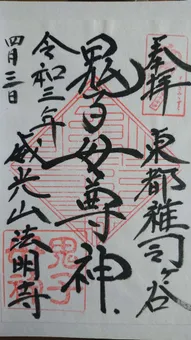 奉拝
東都雑司ヶ谷
鬼子母尊神
威光山法明寺
令和三年
四月三日